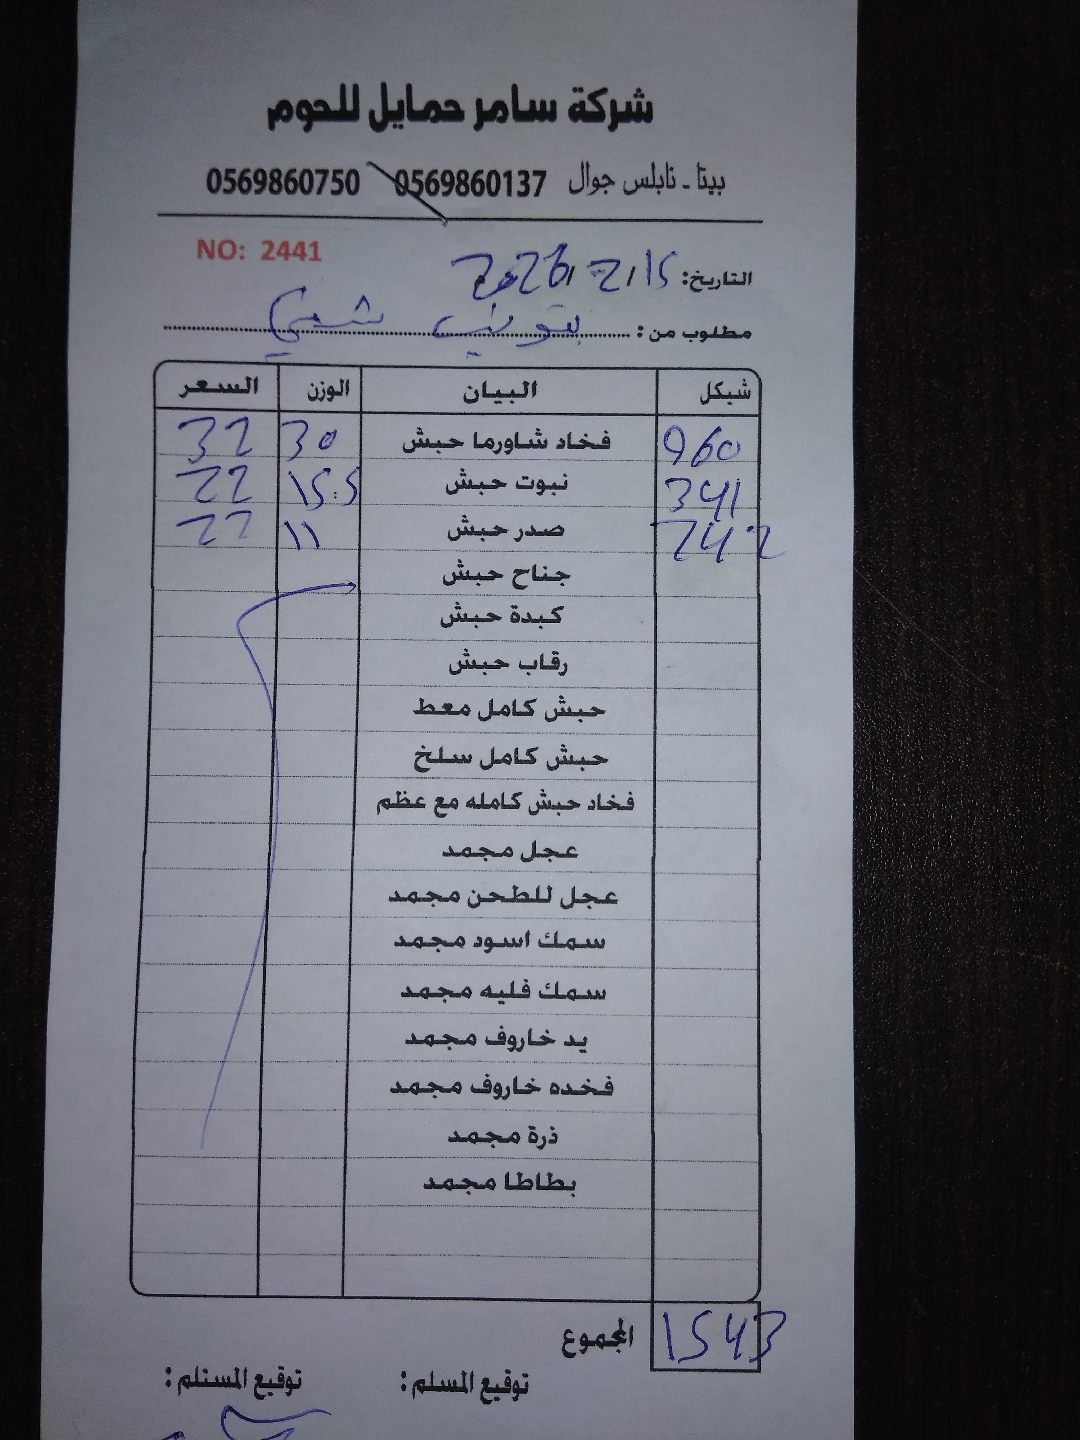 شركة سامر حمايل للحوم
بيتا - نابلس جوال 0569860137 0569860750
NO: 2441
التاريخ: 15/2/2026
مطلوب من:
شيكل البيان الوزن السعر
960 فخاد شاورما حبش 30 32
341 نبوت حبش 15.5 22
242 صدر حبش 11 22
جناح حبش
كبدة حبش
رقاب حبش
حبش كامل معط
حبش كامل سلخ
فخاد حبش كامله مع عظم
عجل مجمد
عجل للطحن مجمد
سمك اسود مجمد
سمك فليه مجمد
يد خاروف مجمد
فخده خاروف مجمد
ذرة مجمد
بطاطا مجمد
المجموع 1543
توقيع المسلم: توقيع المستلم: